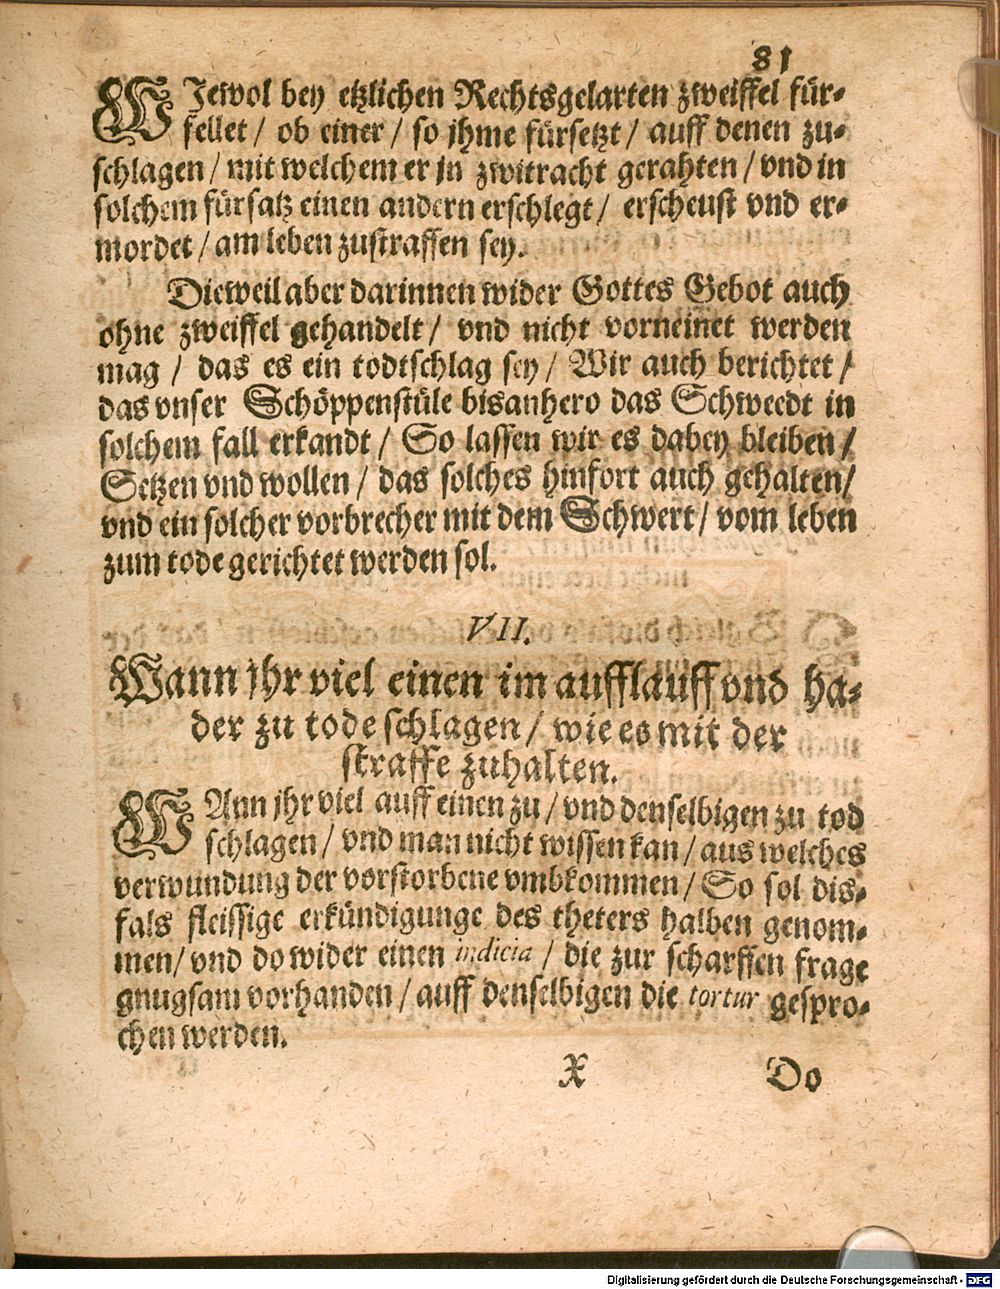 81
WJewol bey etzlichen Rechtsgelarten zweiffel für-
fellet / ob einer / so jhme fürsetzt / auff denen zu-
schlagen / mit welchem er jn zwitracht gerahten / vnd in
solchem fürsatz einen andern erschlegt / erscheust vnd er-
mordet / am leben zustraffen sey.
Dieweil aber darinnen wider Gottes Gebot auch
ohne zweiffel gehandelt / vnd nicht vorneinet werden
mag / das es ein todtschlag sey / Wir auch berichtet /
das vnser Schöppenstüle bisanhero das Schweedt in
solchem fall erkandt / So lassen wir es dabey bleiben /
Setzen vnd wollen / das solches hinfort auch gehalten /
vnd ein solcher vorbrecher mit dem Schwert / vom leben
zum tode gerichtet werden sol.
VII.
Wann jhr viel einen im aufflauff vnd ha-
der zu tode schlagen / wie es mit der
straffe zuhalten.
WAnn jhr viel auff einen zu / vnd denselbigen zu tod
schlagen / vnd man nicht wissen kan / aus welches
verwundung der vorstorbene vmbkommen / So sol dis-
fals fleissige erkündigunge des theters halben genom-
men / vnd do wider einen indicia / die zur scharffen frage
gnugsam vorhanden / auff denselbigen die tortur gespro-
chen werden.
X Do
Digitalisierung gefördert durch die Deutsche Forschungsgemeinschaft - DFG